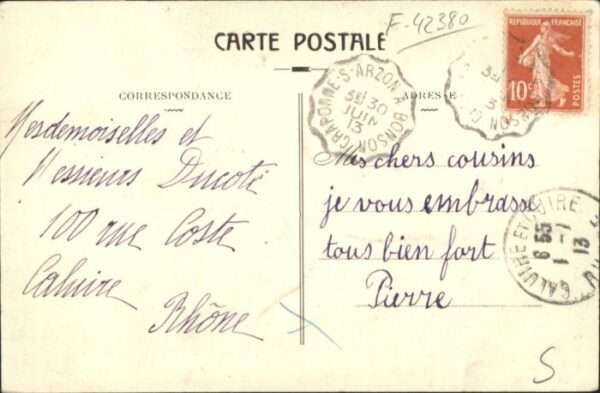 F-42380
CARTE POSTALE
CORRESPONDANCE
ADRESSE
REPUBLIQUE FRANÇAISE
10c
POSTES
CRAPONNE-S-ARZON A BONSON
30
JUIN
13
Mesdemoiselles et
Messieurs Ducoté
100 rue Coste
Caluire
Rhône
Mes chers cousins
je vous embrasse
tous bien fort
Pierre
CALUIRE ET CUIRE
6 55
1-7
13
S